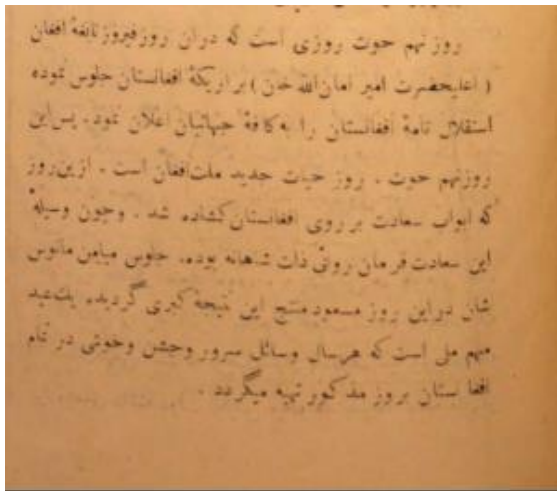 روز نهم حوت روزی است که دران روز فیروز نابغهٔ افغان
( اعلیحضرت امیر امان‌الله خان ) بر اریکهٔ افغانستان جلوس نموده
استقلال تامهٔ افغانستان را به کافهٔ جهانیان اعلان نمود . پس این
روز نهم حوت . روز حیات جدید ملت افغان است . ازین روز
که ابواب سعادت بر روی افغانستان کشاده شد . وچون وسیلهٔ
این سعادت فرمان روئی ذات شاهانه بوده . جلوس میامن مانوس
شان دراین روز مسعود منتج این نتیجهٔ کبری گردید . یک عید
مهم ملی است که هرسال وسائل سرور وجشن وخوشی در تمام
افغا نستان بروز مذکور تهیه میگردد .